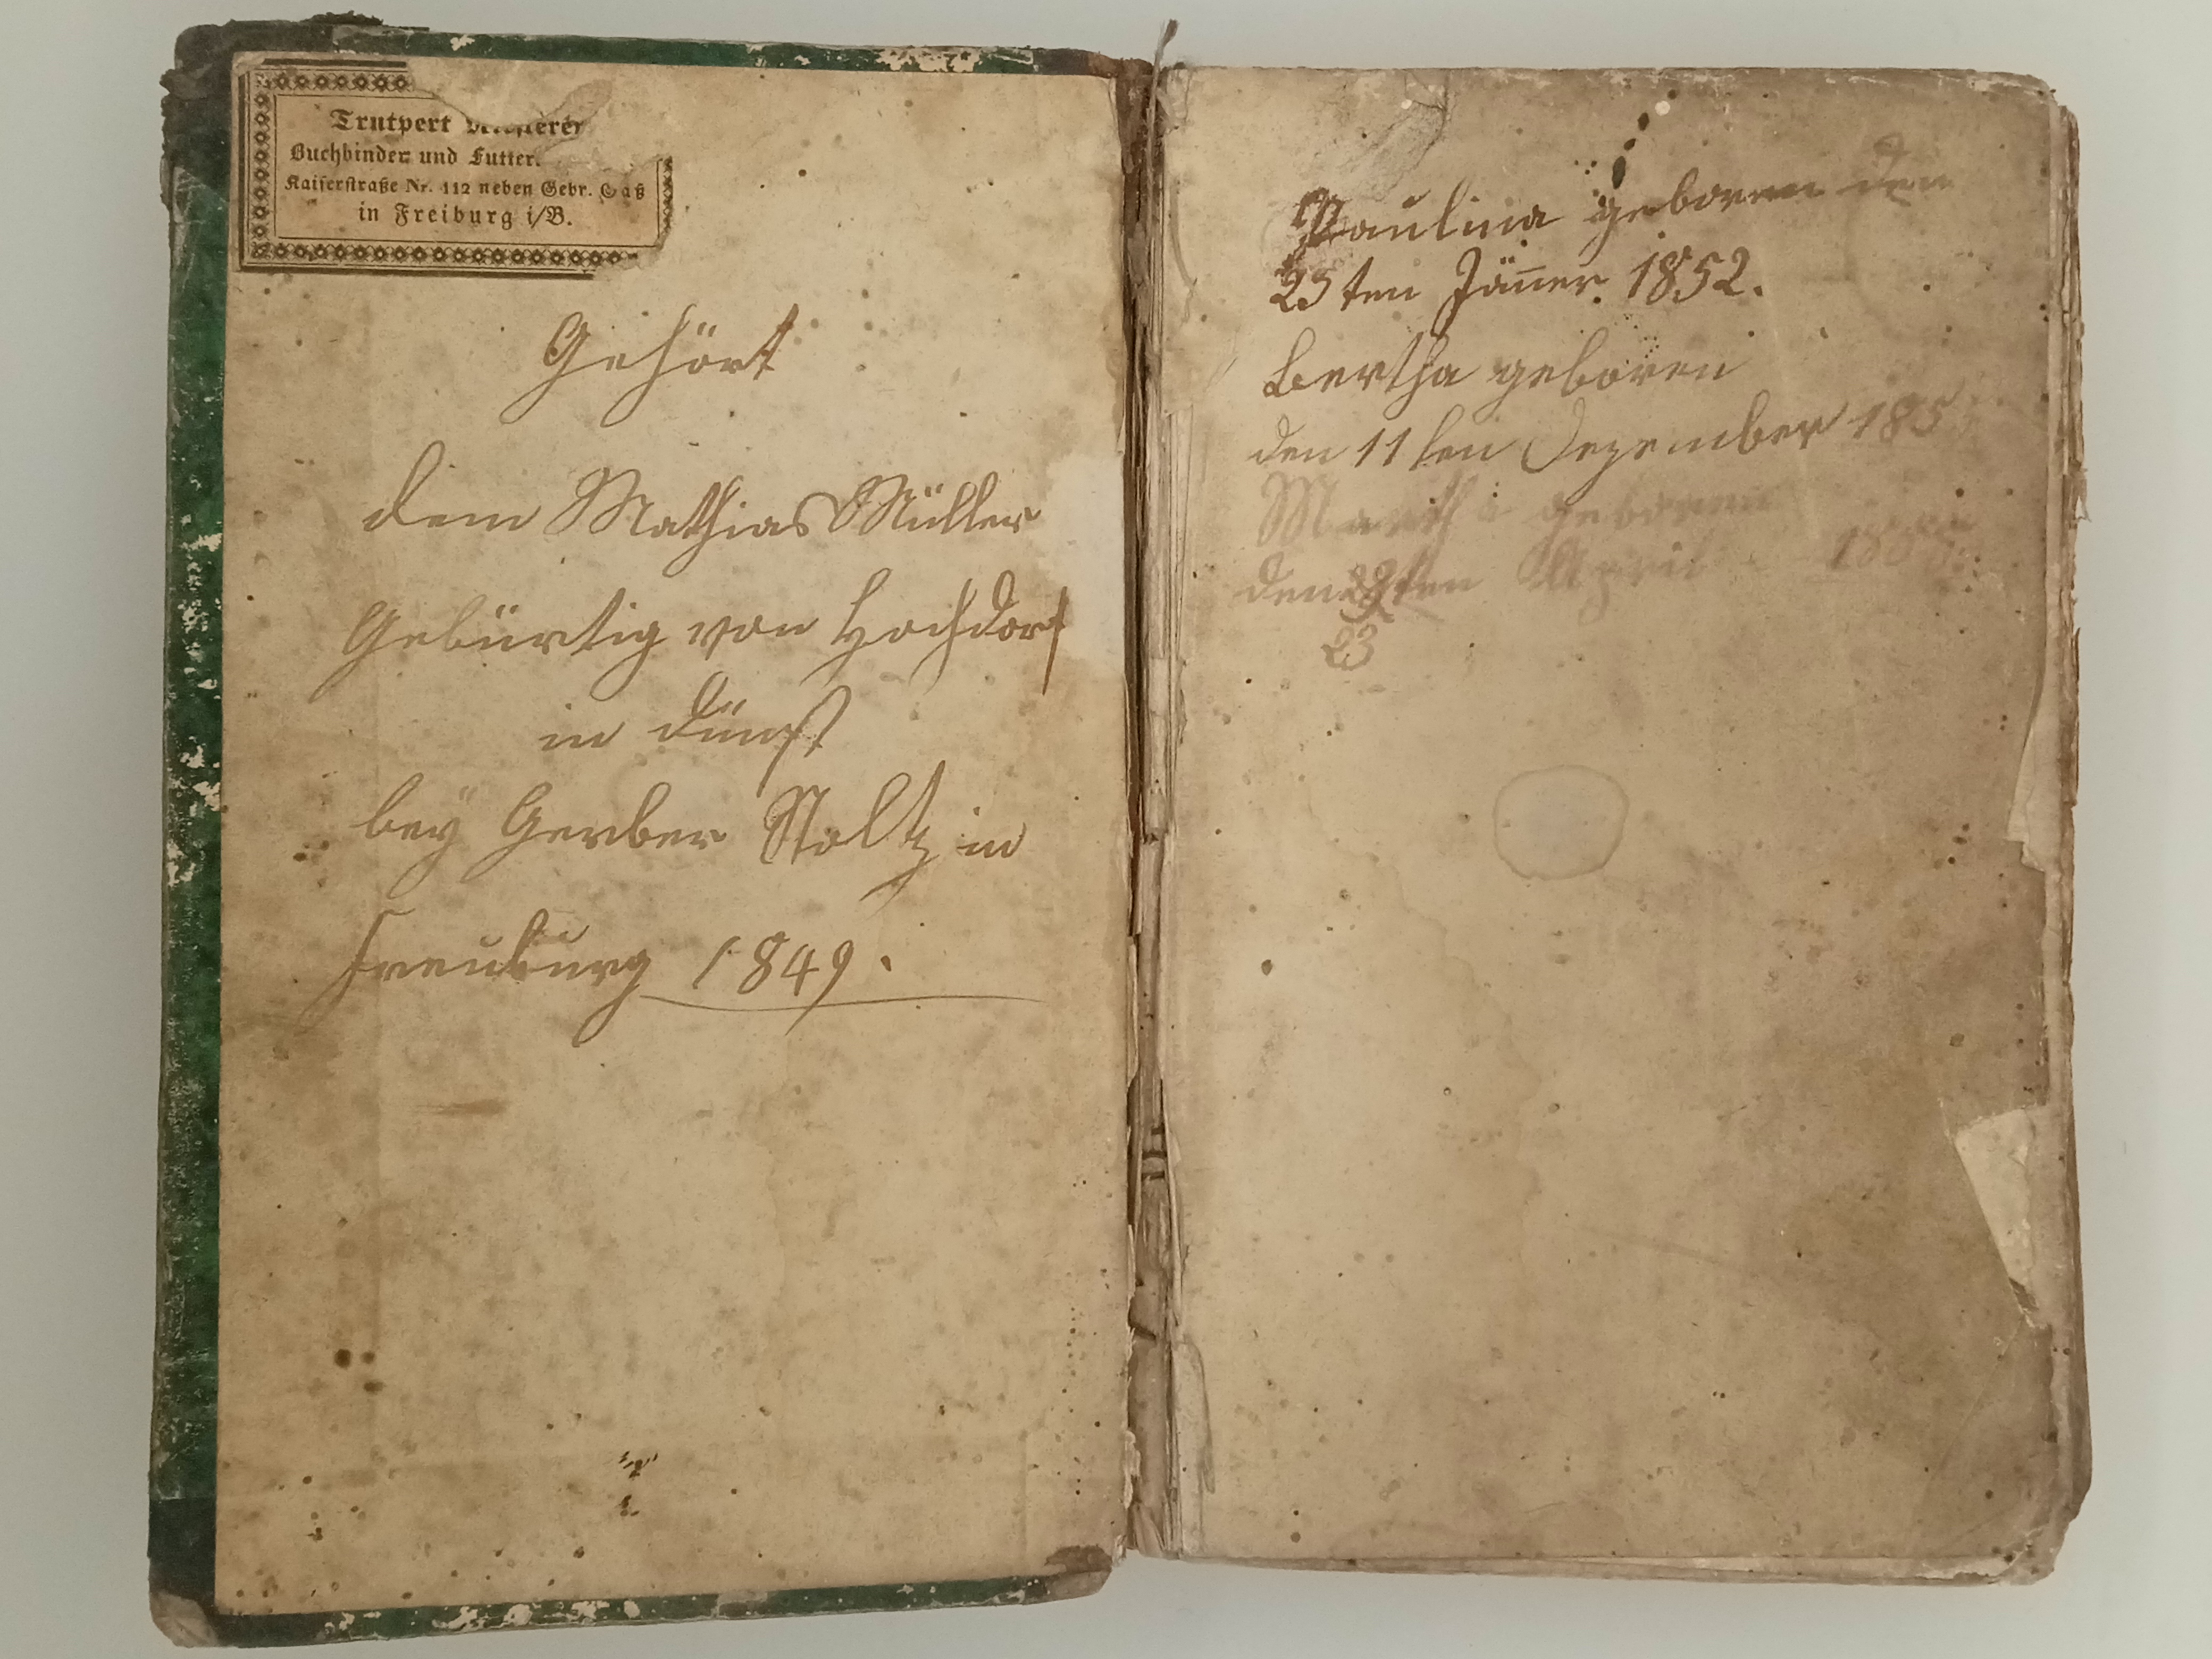 Trutpert
Buchbinder und Futter.
Kaiserstraße Nr. 112 neben Gebr.
in Freiburg i/B.
Gehört
dem Mathias Müller
Gebürtig von Hochdorf
in dünst
bey Gerber Stoltz in
Freuburg 1849.
Paulina geboren den
25ten Jäner. 1852.
Bertha geboren
den 11ten Dezember 185
geboren
den ten April
23